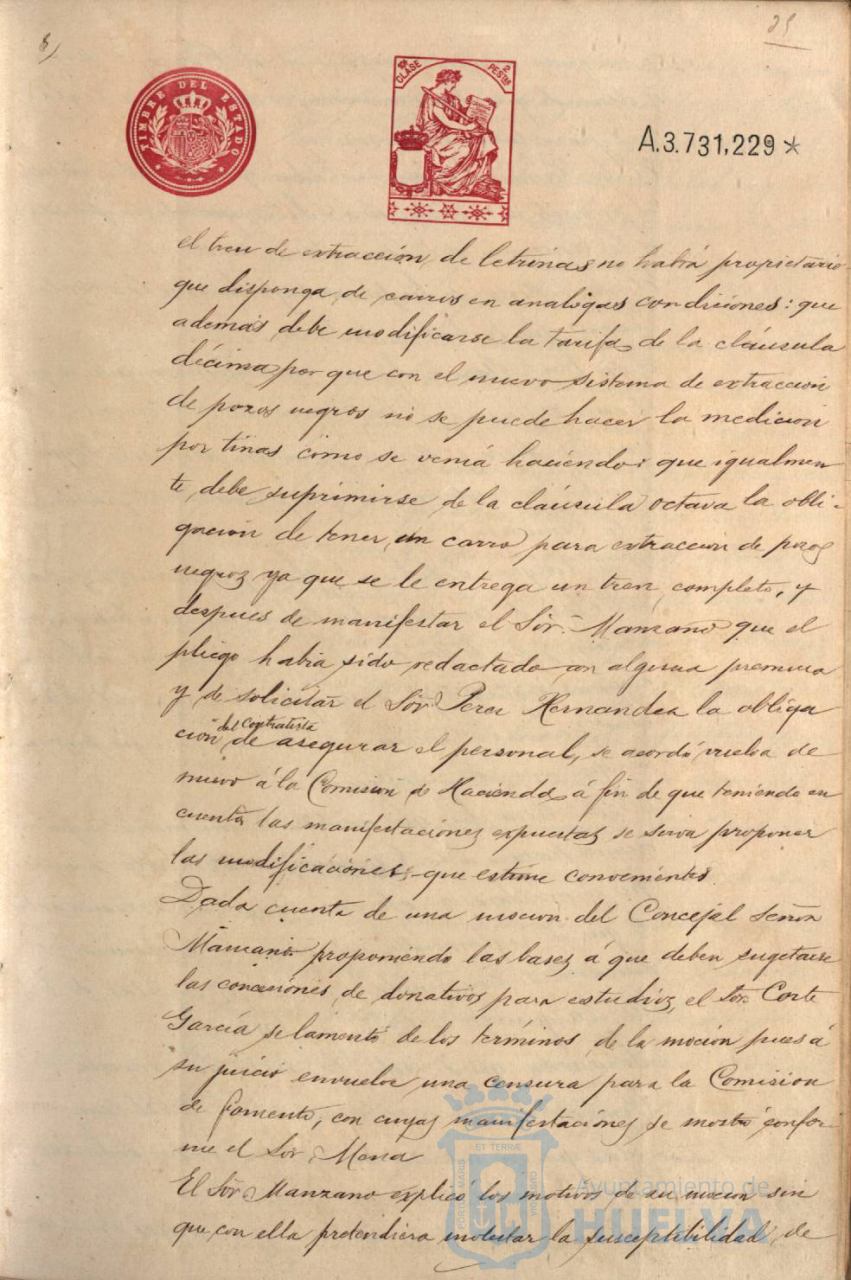 25
TIMBRE DEL ESTADO
10ª CLASE
2 PESTAS
A.3.731,229*
el tren de extracción de letrinas no habrá propietario
que disponga de carros en analogas condiciones: que
además debe modificarse la tarifa de la cláusula
décima por que con el nuevo sistema de extraccion
de pozos negros no se puede hacer la medicion
por tinas cómo se venía haciendo: que igualmen
te debe suprimirse de la cláusula octava la obli-
gación de tener un carro para extraccion de pozos
negros ya que se le entrega un tren completo, y
despues de manifestar el Sor. Manzano que el
pliego habia sido redactado con alguna premura
y de solicitar el Sor. Perez Hernandez la obliga
ción del contratista de asegurar el personal, se acordó vuelva de
nuevo á la Comision de Hacienda á fin de que teniendo en
cuenta las manifestaciones expuestas se sirva proponer
las modificaciónes que estime convenientes.
Dada cuenta de una mocion del Concejal Señor
Manzano proponiendo las bases á que deben sugetarse
las concesiónes de donativos para estudios, el Sor. Corte
García se lamentó de los términos de la moción pues á
su juicio envuelve una censura para la Comision
de Fomento, con cuyas manifestaciónes se mostró confor-
me el Sor. Mena
El Sor. Manzano explicó los motivos de su mocion sin
que con ella pretendiera molestar la susceptibilidad de
Ayuntamiento de
HUELVA